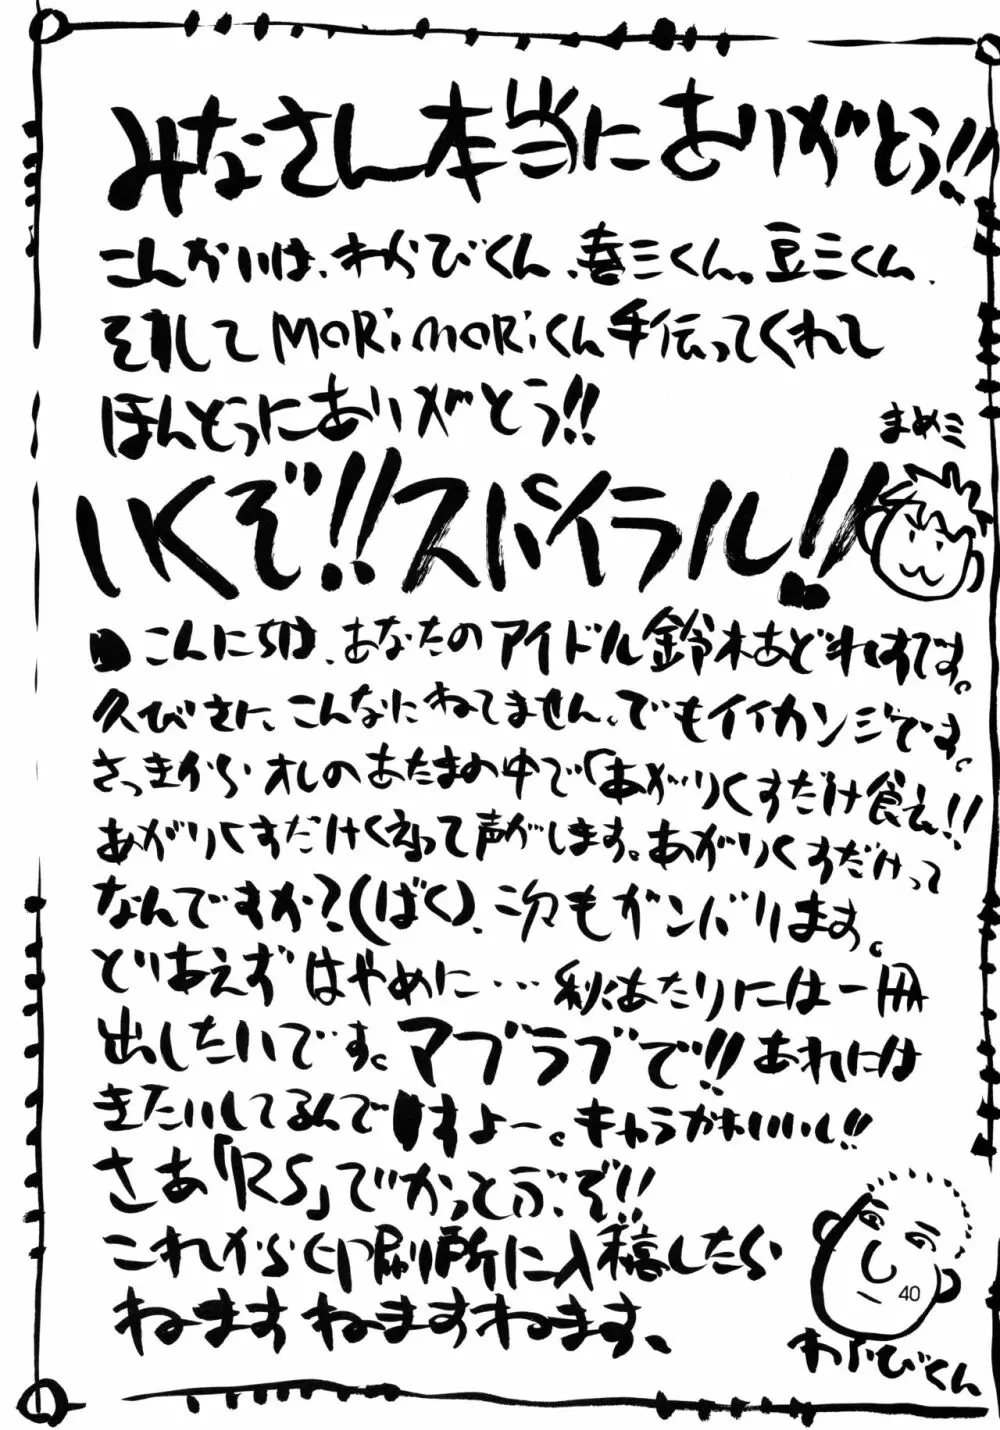 みなさん本当にありがとう!!
こんかいは、わらびくん、喜三くん。豆三くん、
そして MORiMORiくん 手伝ってくれて
ほんとうにありがとう!!
まめミ
いくぞ!!スパイラル!!
こんにちは、あなたのアイドル鈴木あどれすです。
久びさに、こんなにねてません、でもイイカンジです。
さっきからオレのあたまの中で「あがりくすだけ食え!!
あがりくすだけくえって声がします。あがりくすだけって
なんですか?(ばく)、次もガンバリます。
とりあえずはやめに…秋あたりには一冊
出したいです。マブラブで!!あれには
きたいしてるんですよー。キャラかわいいし!!
さあ「RS」でかっとぶぞ!!
これから印刷所に入稿したら
ねますねますねます、
40
わらびくん